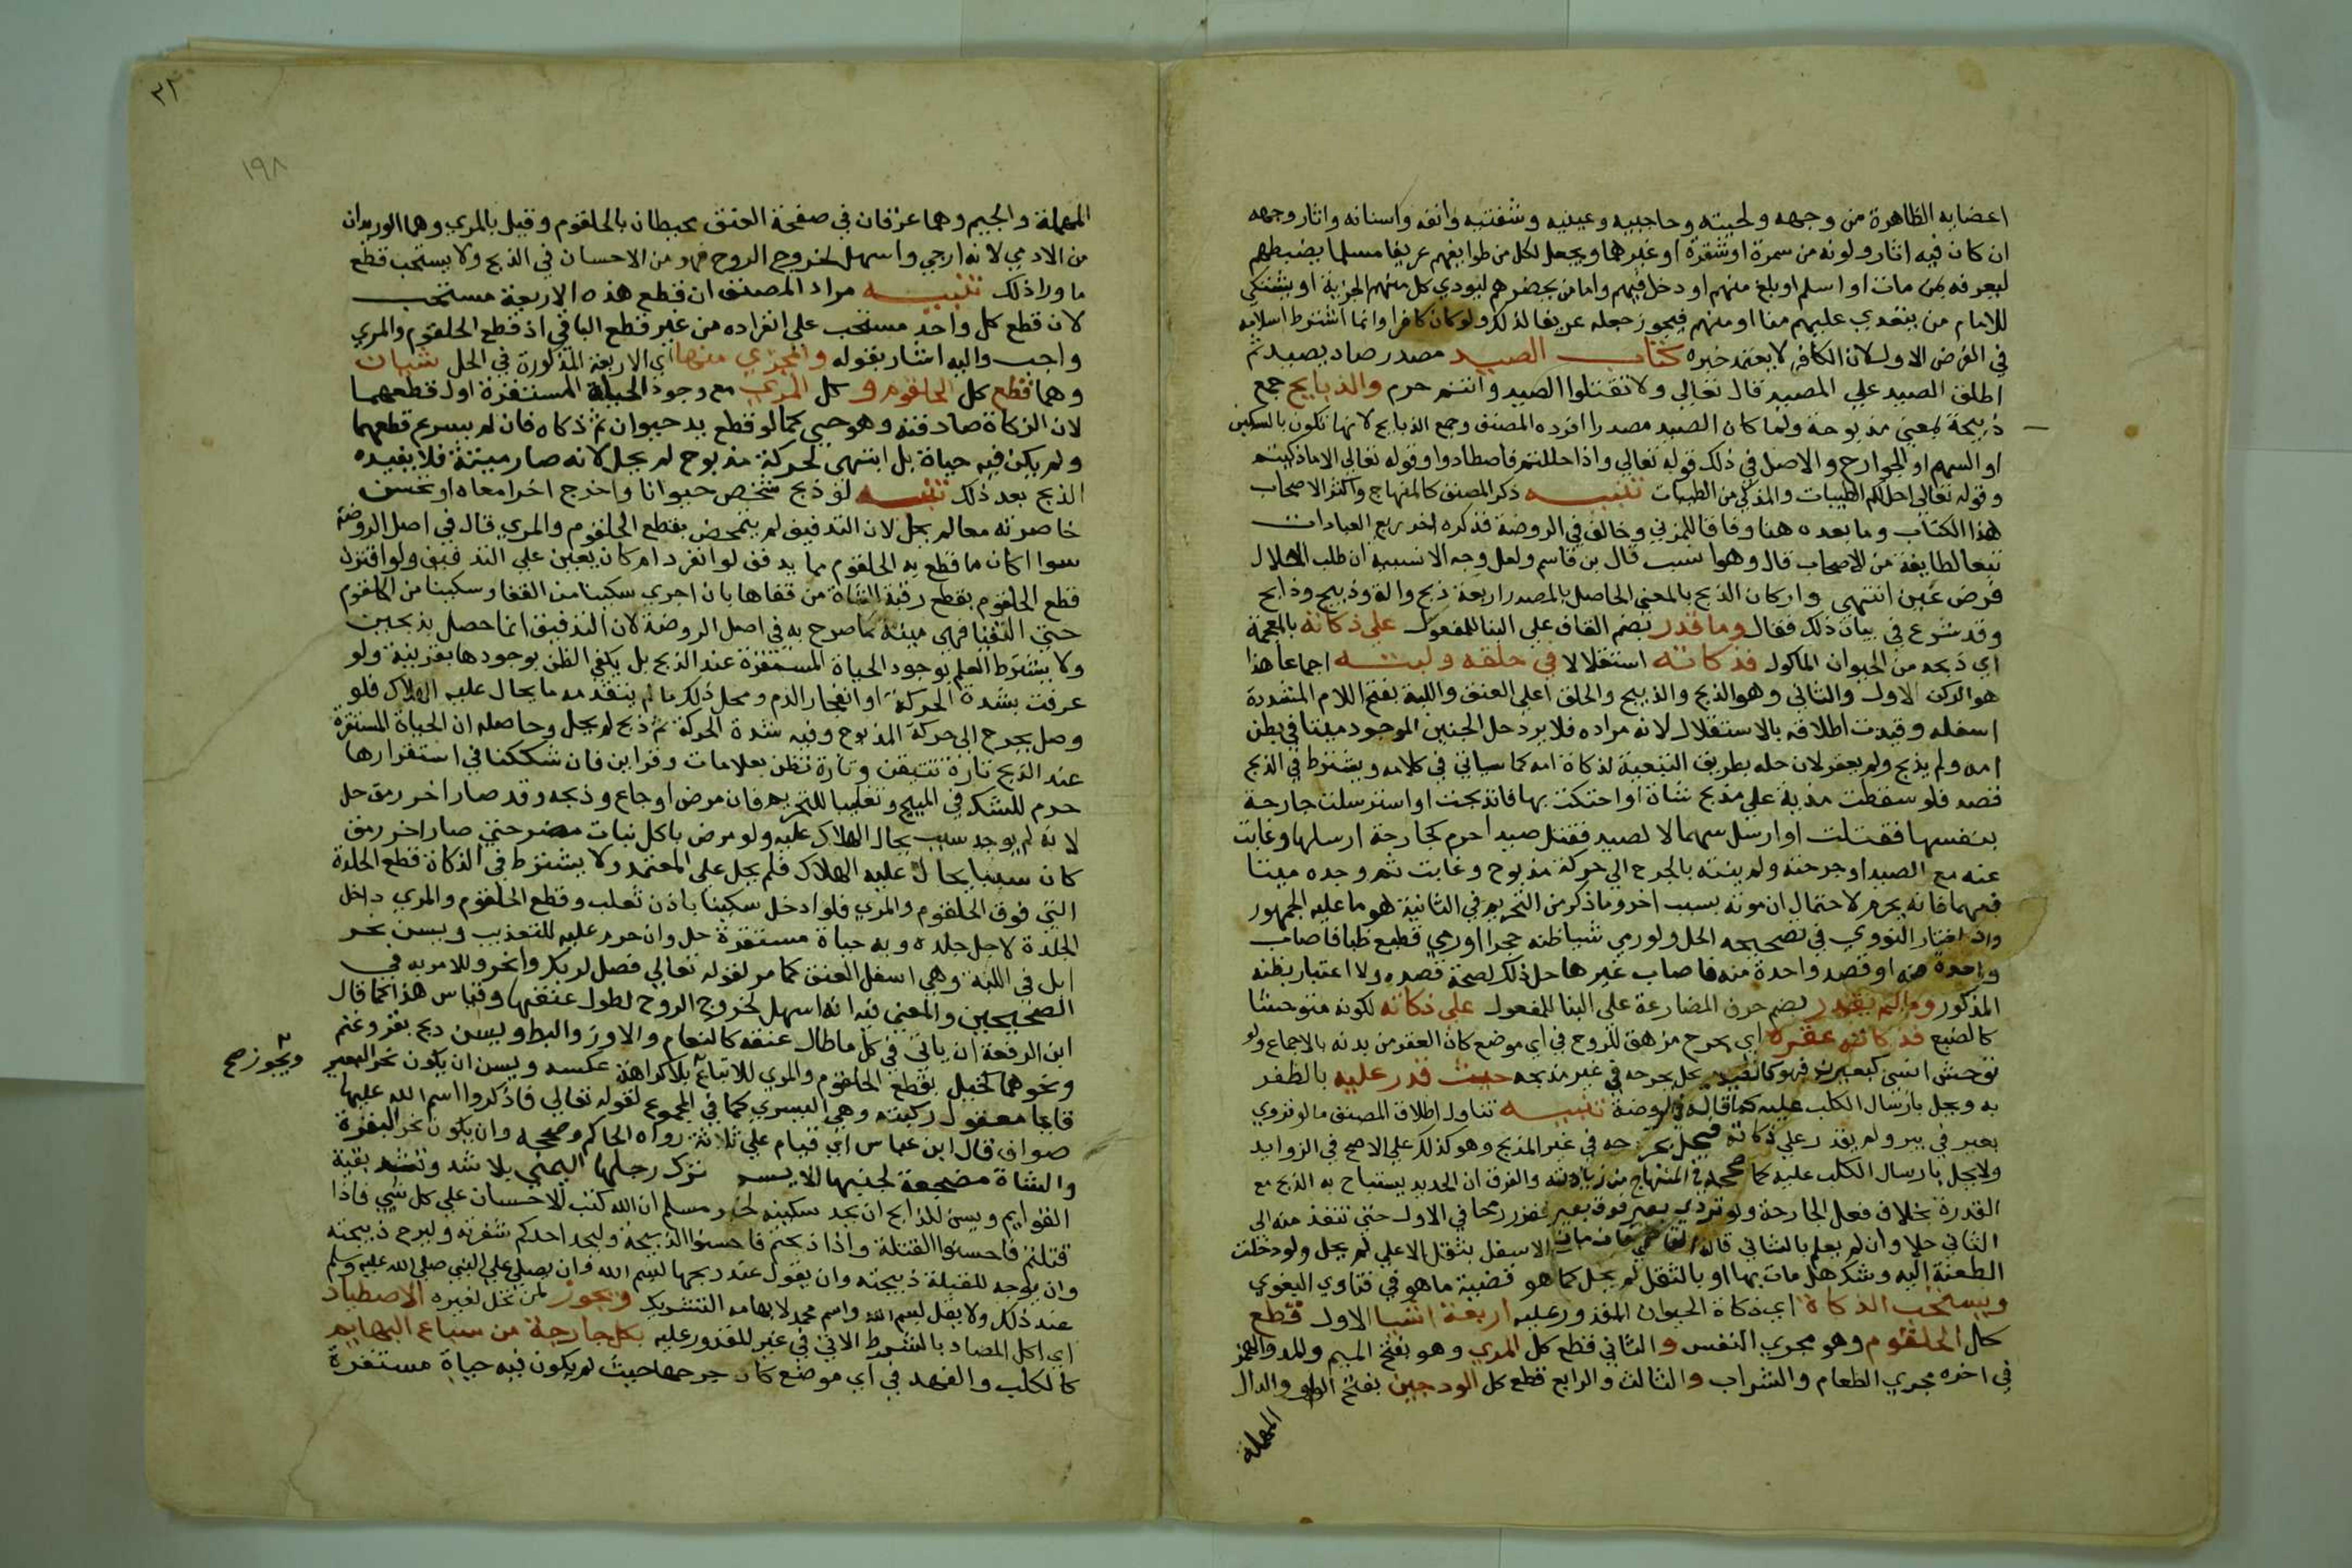 اعضايه الظاهرة من وجهه ولحيته وحاجبيه وعينيه وشفتيه وانفه واسنانه واثار وجهه
ان كان فيه اثار ولونه من سمرة او شقرة او غيرهما ويجعل لكل من طوايفهم عريفا مسلما يضبطهم
ليعرفه بمن مات او اسلم او بلغ منهم او دخل فيهم واما من يحضرهم ليودي كل منهم الجزية او يشتكي
للامام من يتعدي عليهم منا او منهم فيجوز جعله عريفا لذلك ولو كان كافرا وانما اشترط اسلامه
في الغرض الاول لان الكافر لا يعتمد خبره كتاب الصيد مصدر صاد يصيد ثم
اطلق الصيد علي المصيد قال تعالي ولا تقتلوا الصيد وانتم حرم والذبايح جمع
ذبيحة بمعني مذبوحة ولما كان الصيد مصدرا افرده المصنف وجمع الذبايح لانها تكون بالسكين
او السهم او الجوارح والاصل في ذلك قوله تعالي واذا حللتم فاصطادوا وقوله تعالي الا ما ذكيتم
وقوله تعالي احل لكم الطيبات والمذكي من الطيبات تنبيه ذكر المصنف كالمنهاج واكثر الاصحاب
هذا الكتاب وما بعده هنا وفاقا للمزني وخالف في الروضة فذكره اخر ربع العبادات
تبعا لطايفة من الاصحاب قال وهو انسب قال بن قاسم ولعل وجه الانسبية ان طلب الحلال
فرض عين انتهي واركان الذبح بالمعني الحاصل بالمصدر اربعة ذبح والة وذبيح وذابح
وقد شرع في بيان ذلك فقال وما قدر بضم القاف علي البنا للمفعول علي ذكاته بالمعجمة
اي ذبحه من الحيوان الماكول فذكاته استقلالا في حلقه ولبته اجماعا هذا
هو الركن الاول والثاني وهو الذبح والذبيح والحلق اعلي العنق واللبة بفتح اللام المشددة
اسفله وقيدت اطلاقه بالاستقلال لانه مراده فلا يرد حل الجنين الموجود ميتا في بطن
امه ولم يذبح ولم يعقر لان حله بطريق التبعية لذكاة امه كما سياتي في كلامه ويشترط في الذبح
قصد فلو سقطت مذية علي مذبح شاة او احتكت بها فانذبحت او استرسلت جارحة
بنفسها فقتلت او ارسل سهما لا لصيد فقتل صيدا حرم كجارحة ارسلها وغابت
عنه مع الصيد او جرحته ولم ينته بالجرح الي حركة مذبوح وغابت ثم وجده ميتا
فيهما فانه يحرم لاحتمال ان موته بسبب اخر وما ذكر من التحريم في الثانية هو ما عليه الجمهور
وان اختار النووي في تصحيحه الحل ولو رمي شيا ظنه حجرا او رمي قطيع ظبا فاصاب
واحدة منه او قصد واحدة منه فاصاب غيرها حل ذلك لصحة قصده ولا اعتبار بظنه
المذكور وما لم يقدر بضم حرف المضارعة علي البنا للمفعول علي ذكاته لكونه متوحشا
كالضبع فذكاته عقره اي بجرح مزهق للروح في اي موضع كان العقر من بدنه بالاجماع ولو
توحش انسي كبعير ند فهو كالصيد يحل بجرحه في غير مذبحه حيث قدر عليه بالظفر
به ويحل بارسال الكلب عليه كما قاله في الروضة تنبيه تناول اطلاق المصنف ما لو تردي
بعير في بير ولم يقدر علي ذكاته فيحل بجرحه في غير المذبح وهو كذلك علي الاصح في الزوايد
ولا يحل بارسال الكلب عليه كما صححه في المنهاج من زيادته والفرق ان الحديد يستباح به الذبح مع
القدرة بخلاف فعل الجارحة ولو تردي بعير فوق بعير فغرز رمحا في الاول حتي نفذ منه الي
الثاني حلا وان لم يعلم بالثاني قاله القاضي فان مات الاسفل بثقل الاعلي لم يحل ولو دخلت
الطعنة اليه وشك هل مات بها او بالثقل لم يحل كما هو قضية ما هو في فتاوي البغوي
ويستحب الذكاة اي ذكاة الحيوان المقدور عليه اربعة اشيا الاول قطع
كل الحلقوم وهو مجري النفس و الثاني قطع كل المري وهو بفتح الميم والمد والهمز
في اخره مجري الطعام والشراب والثالث والرابع قطع كل الودجين بفتح الواو والدال
المهملة
٣٢
١٩٨
المهملة والجيم وهما عرقان في صفحة العنق يحيطان بالحلقوم وقيل بالمري وهما الوريدان
من الادمي لانه ارجي واسهل لخروج الروح فهو من الاحسان في الذبح ولا يستحب قطع
ما ورا ذلك تنبيه مراد المصنف ان قطع هذه الاربعة مستحب
لان قطع كل واحد مستحب علي انفراده من غير قطع الباقي اذ قطع الحلقوم والمري
واجب واليه اشار بقوله والمجزي منها اي الاربعة المذكورة في الحل شيان
وهما قطع كل الحلقوم و كل المري مع وجود الحياة المستقرة اول قطعهما
لان الزكاة صادفته وهو حي كما لو قطع يد حيوان ثم ذكاه فان لم يسرع قطعهما
ولم يكن فيه حياة بل انتهي لحركة مذبوح لم يحل لانه صار ميتة فلا يفيده
الذبح بعد ذلك تنبيه لو ذبح شخص حيوانا واخرج اخر امعاه او نخس
خاصرته معا لم يحل لان التدفيف لم يتمحض بقطع الحلقوم والمري قال في اصل الروضة
سوا اكان ما قطع به الحلقوم مما يدفف لو انفرد ام كان يعين علي التدفيف ولو اقترن
قطع الحلقوم بقطع رقبة الشاة من قفاها بان اجري سكينا من القفا وسكينا من الحلقوم
حتي التقتا فهي ميتة كما صرح به في اصل الروضة لان التدفيف انما حصل بذبحين
ولا يشترط العلم بوجود الحياة المستقرة عند الذبح بل يكفي الظن بوجودها بقرينة ولو
عرفت بشدة الحركة او انفجار الدم ومحل ذلك ما لم يتقدمه ما يحال عليه الهلاك فلو
وصل بجرح الي حركة المذبوح وفيه شدة الحركة ثم ذبح لم يحل وحاصله ان الحياة المستقرة
عند الذبح تارة تتيقن وتارة تظن بعلامات وقراين فان شككنا في استقرارها
حرم للشك في المبيح وتغليبا للتحريم فان مرض او جاع وذبحه وقد صار اخر رمق حل
لانه لم يوجد سبب يحال الهلاك عليه ولو مرض باكل نبات مضر حتي صار اخر رمق
كان سببا يحال عليه الهلاك فلم يحل علي المعتمد ولا يشترط في الذكاة قطع الجلدة
التي فوق الحلقوم والمري فلو ادخل سكينا باذن ثعلب وقطع الحلقوم والمري داخل
الجلدة لاجل جلده وبه حياة مستقرة حل وان حرم عليه للتعذيب ويسن نحر
ابل في اللبة وهي اسفل العنق كما مر لقوله تعالي فصل لربك وانحر وللامر به في
الصحيحين والمعني فيه انه اسهل لخروج الروح لطول عنقها وقياس هذا كما قال
ابن الرفعة ان ياتي في كل ما طال عنقه كالنعام والاوز والبط ويسن ذبح بقر وغنم
ونحوهما كخيل بقطع الحلقوم والمري للاتباع بلا كراهة عكسه ويسن ان يكون نحر البعير
ويجوز صح
قايما معقول ركبته وهي اليسري كما في المجموع لقوله تعالي فاذكروا اسم الله عليها
صواف قال ابن عباس اي قيام علي ثلاثة رواه الحاكم وصححه وان يكون نحر البقرة
والشاة مضجعة لجنبها الايسر تترك رجلها اليمني بلا شد وتشد بقية
القوايم ويسن للذابح ان يحد سكينه لخبر مسلم ان الله كتب الاحسان علي كل شي فاذا
قتلتم فاحسنوا القتلة واذا ذبحتم فاحسنوا الذبيحة وليحد احدكم شفرته وليرح ذبيحته
وان يوجه للقبلة ذبيحته وان يقول عند ذبحها بسم الله وان يصلي علي النبي صلي الله عليه وسلم
عند ذلك ولا يقل بسم الله واسم محمد لايهامه التشريك ويجوز لمن تحل لغيره الاصطياد
اي اكل المصاد بالشرط الاتي في غير المقدور عليه بكل جارحة من سباع البهايم
كالكلب والفهد في اي موضع كان جرحها حيث لم يكون فيه حياة مستقرة